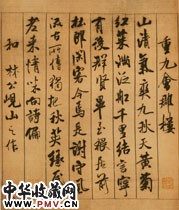 重九會郡樓
山清氣爽九秋天黃菊
紅茱滿泛船千里結言寧
有後群賢畢至猥居前
杜郎閑客今焉是謝守風
流古所傳獨把秋英緣底事
老來情味向詩偏
和林公峴山之作
华夏收藏网
www.cang.com